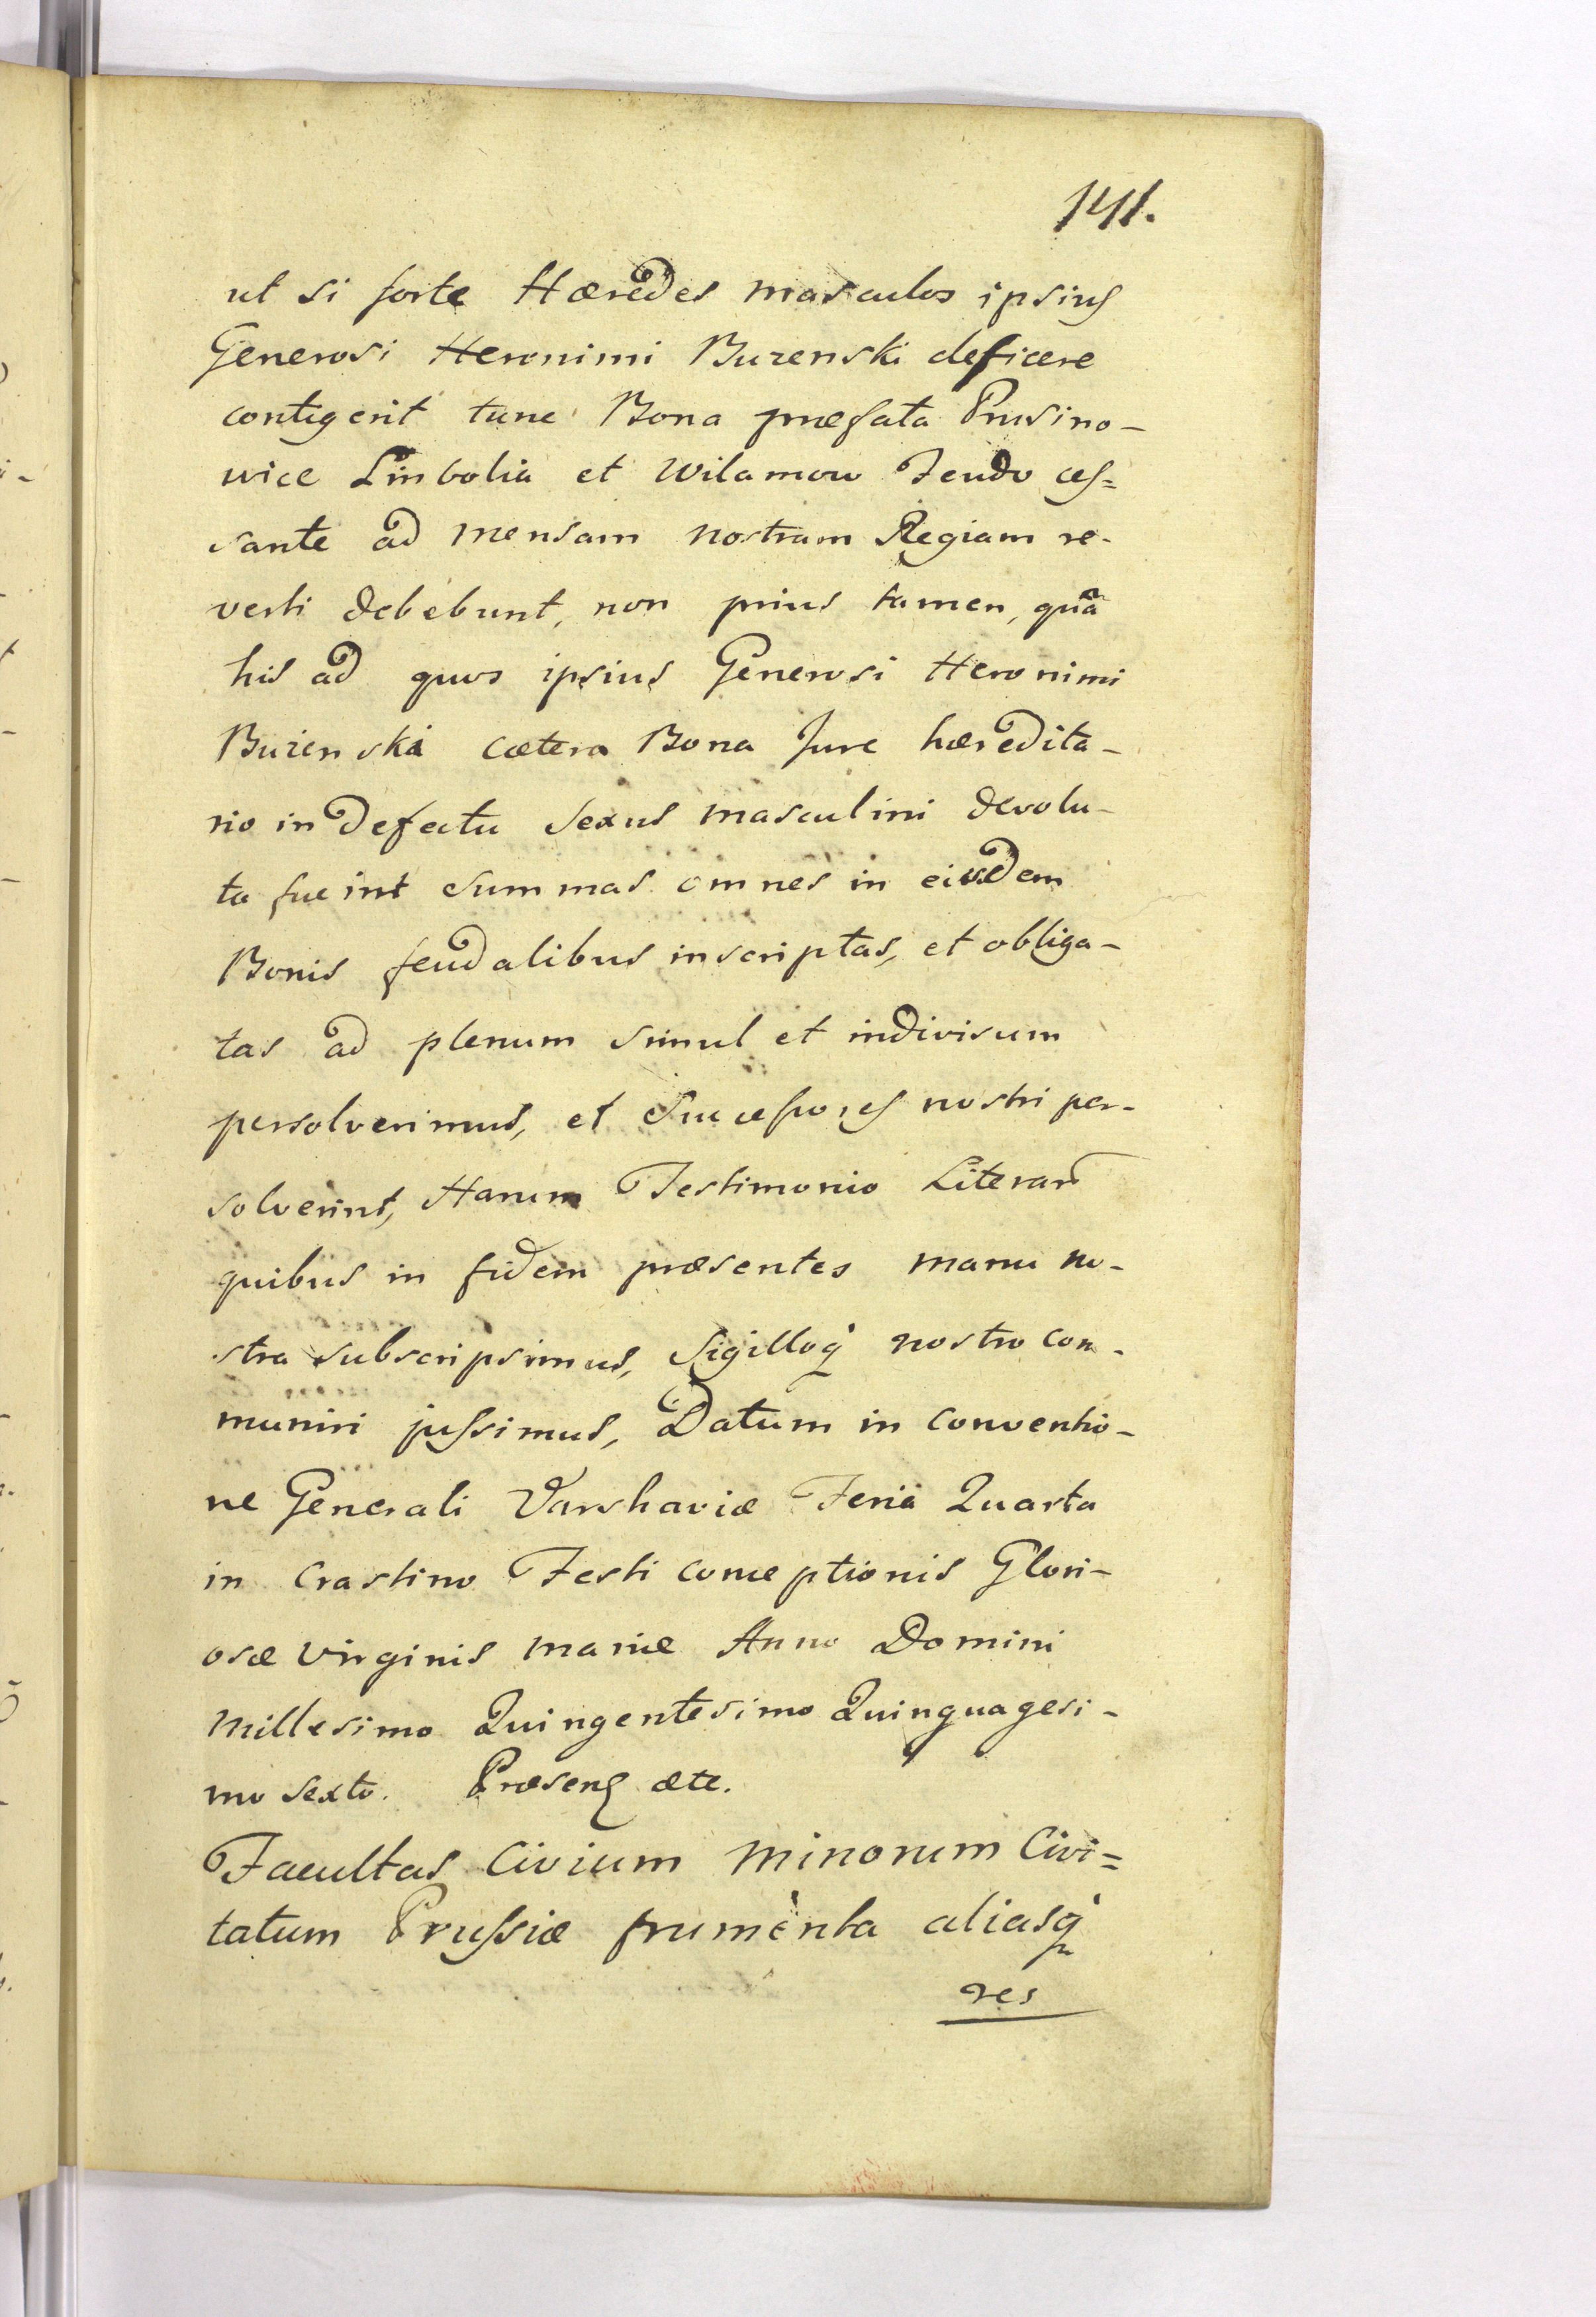 141.
ut si forte Hæredes masculos ipsius
Generosi Heronimi Buzenski deficere
contigerit tunc Bona præfata Prusino-
wice Linbolia et Wilamow Feudo ces=
sante ad mensam nostram Regiam re-
verti debebunt, non prius tamen, quã
his ad quos ipsius Generosi Heronimi
Buzenski cætera Bona Jure hæredita-
rio in defectu sexus masculini devolu-
ta fueint summas omnes in eisdem
Bonis feudalibus inscriptas, et obliga-
tas ad plenum simul et indivisum
persolverimus, et Successores nostri per-
solverint, Harum Testimonio Literar̃
quibus in fidem præsentes manu no-
stra subscripsimus, Sigilloq́ nostro com-
muniri jussimus, Datum in conventio-
ne Generali Varshaviæ Feria Quarta
in Crastino Festi conceptionis Glori-
osæ Virginis mariæ Anno Domini
Millesimo Quingentesimo Quinquagesi-
mo sexto. Præsenς etc.
Facultas Civium minorum Civi=
tatum Prussiæ frumenta aliasq́
res